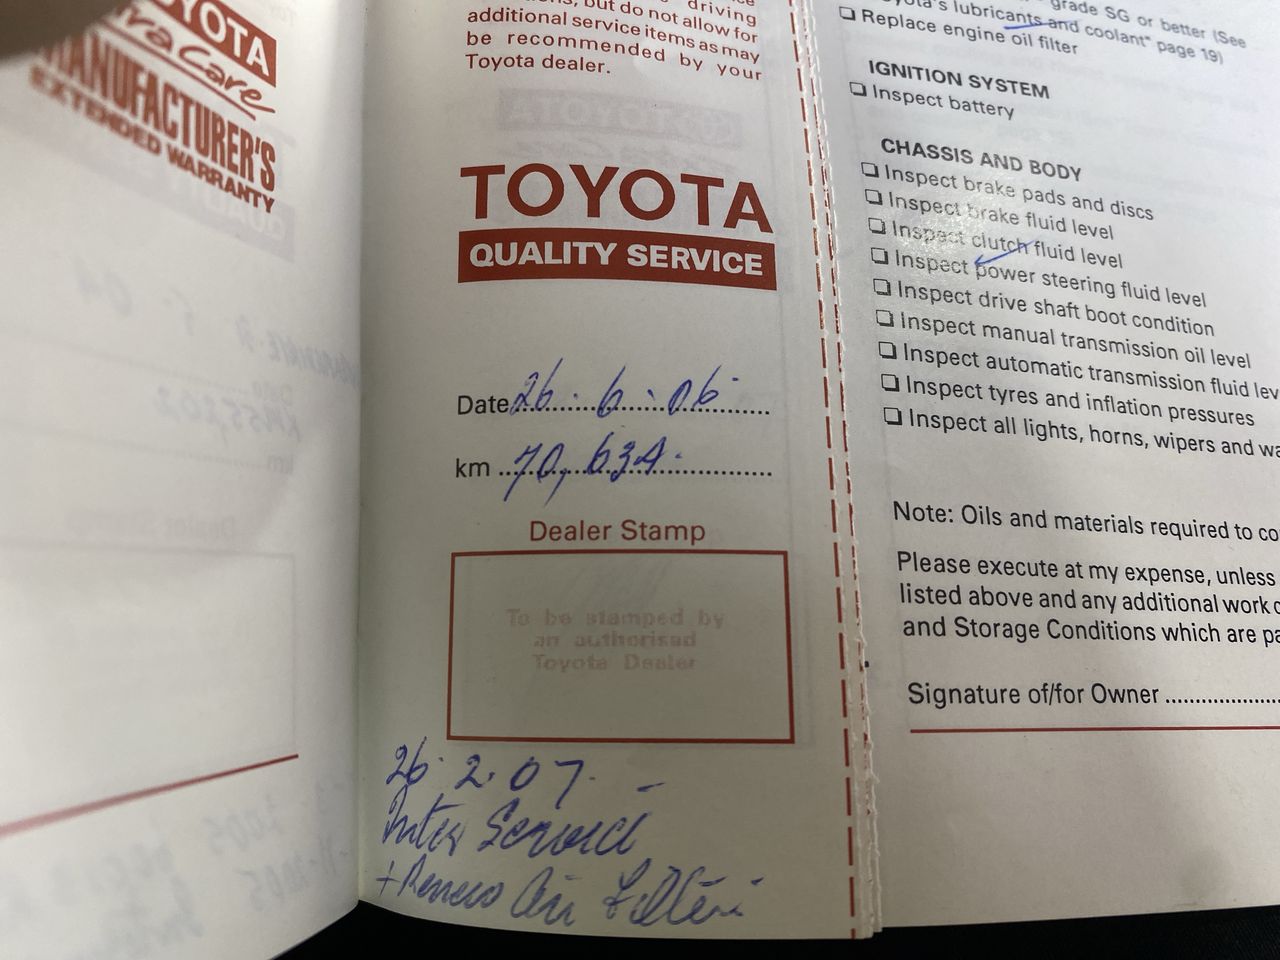 TOYOTA
MANUFACTURER'S
EXTENDED WARRANTY
driving
but do not allow for
additional service items as may
be recommended by your
Toyota dealer.
TOYOTA
QUALITY SERVICE
Date 26.6.06
km 70,634.
Dealer Stamp
To be stamped by
an authorised
Toyota Dealer
26.2.07.
Inter Service
+ Renew Air Filter
grade SG or better (See
lubricants and coolant" page 19)
❑ Replace engine oil filter
IGNITION SYSTEM
❑ Inspect battery
CHASSIS AND BODY
❑ Inspect brake pads and discs
❑ Inspect brake fluid level
❑ Inspect clutch fluid level
❑ Inspect power steering fluid level
❑ Inspect drive shaft boot condition
❑ Inspect manual transmission oil level
❑ Inspect automatic transmission fluid
❑ Inspect tyres and inflation pressures
❑ Inspect all lights, horns, wipers and
Note: Oils and materials required to
Please execute at my expense, unless
listed above and any additional work
and Storage Conditions which are
Signature of/for Owner